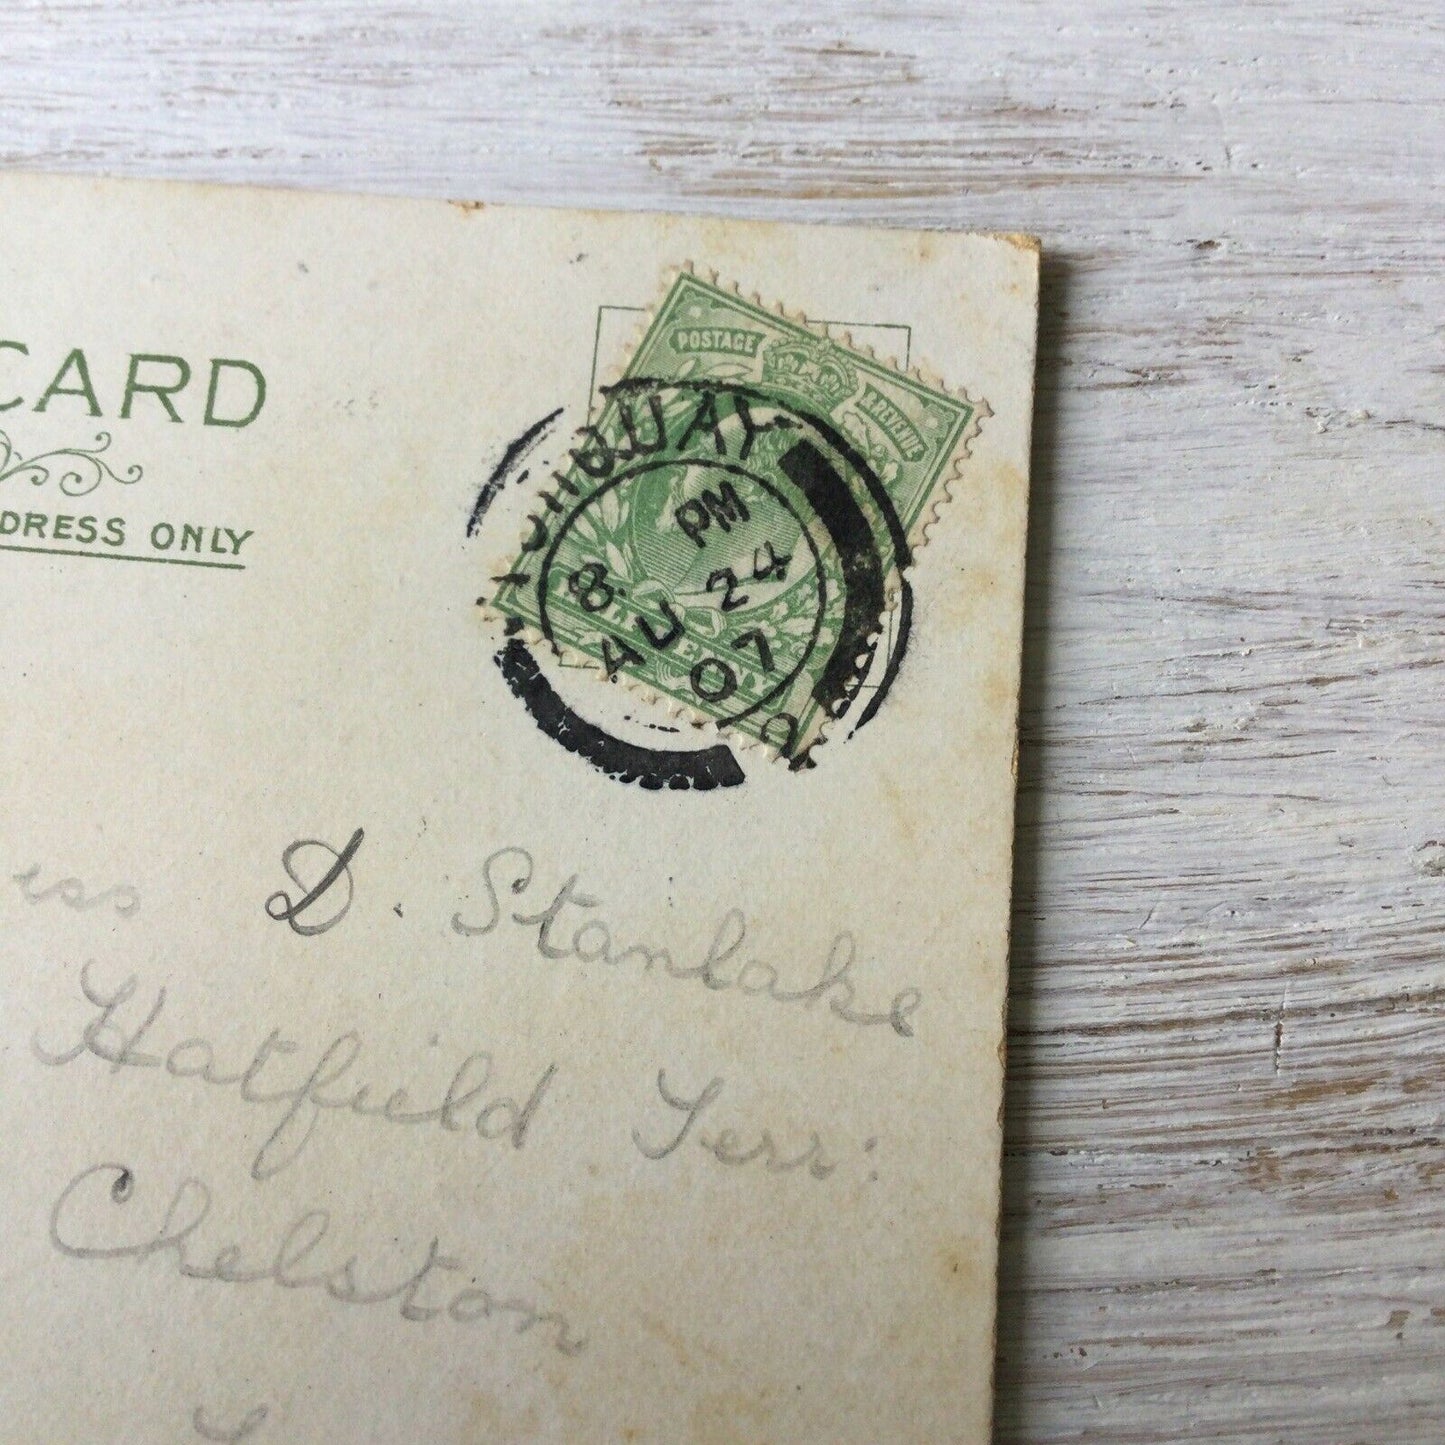 CARD
DRESS ONLY
POSTAGE
& REVENUE
TORQUAY
8 PM
AU 24
07
HALFPENNY
ess D. Stanlake
Hatfield Terr:
Chelston